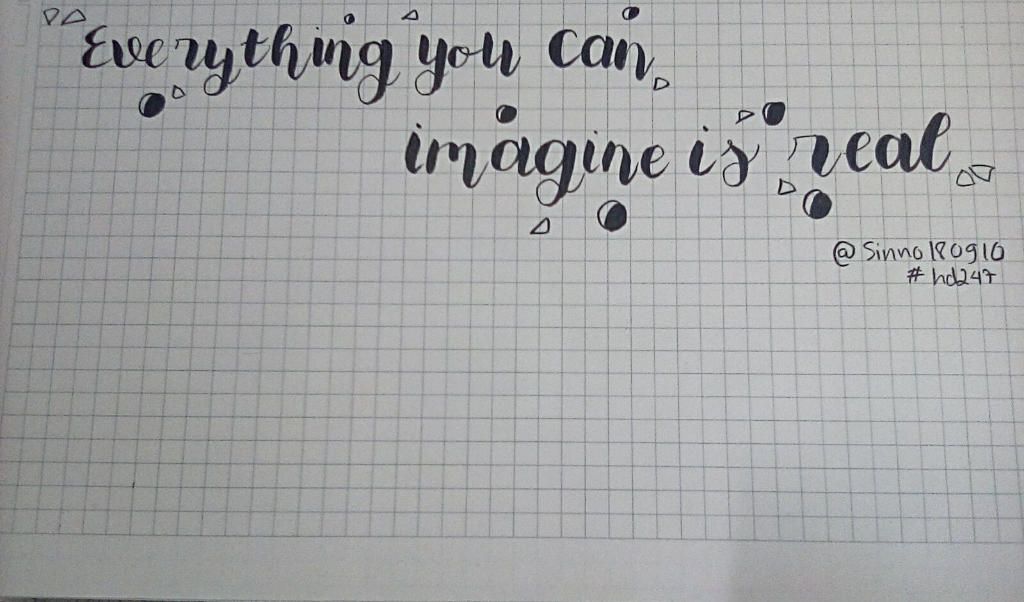 Everything you can
imagine is real.
@Sinno180910
#hd247